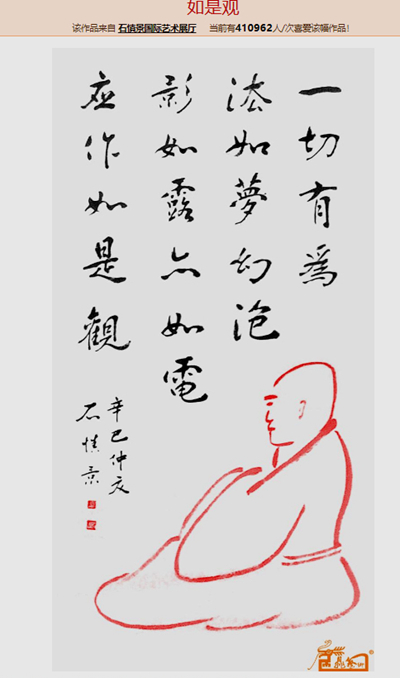 如是观
该作品来自 石慎景国际艺术展厅 当前有410962人/次喜爱该幅作品!
一切有為
法如夢幻泡
影如露亦如電
应作如是觀
辛巳仲亥
石慎景